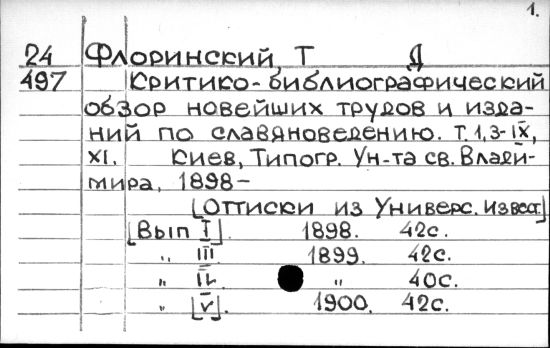 1.
24 Флоринский, Т Д
497 Критико-библиографический
обзор новейших трудов и изда-
ний по славяноведению. Т. 1, 3-IX,
XI. Киев, Типогр. Ун-та св. Влади-
мира, 1898-
[Оттиски из Универс. Извест.]
[Вып I]. 1898. 42с.
" III 1899. 42с.
" IV. " 40с.
" [V]. 1900. 42с.